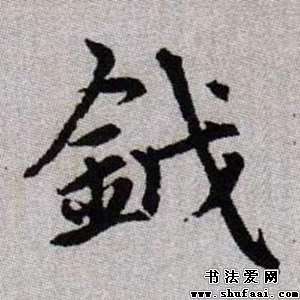 鉞
书法爱网
www.shufaai.com